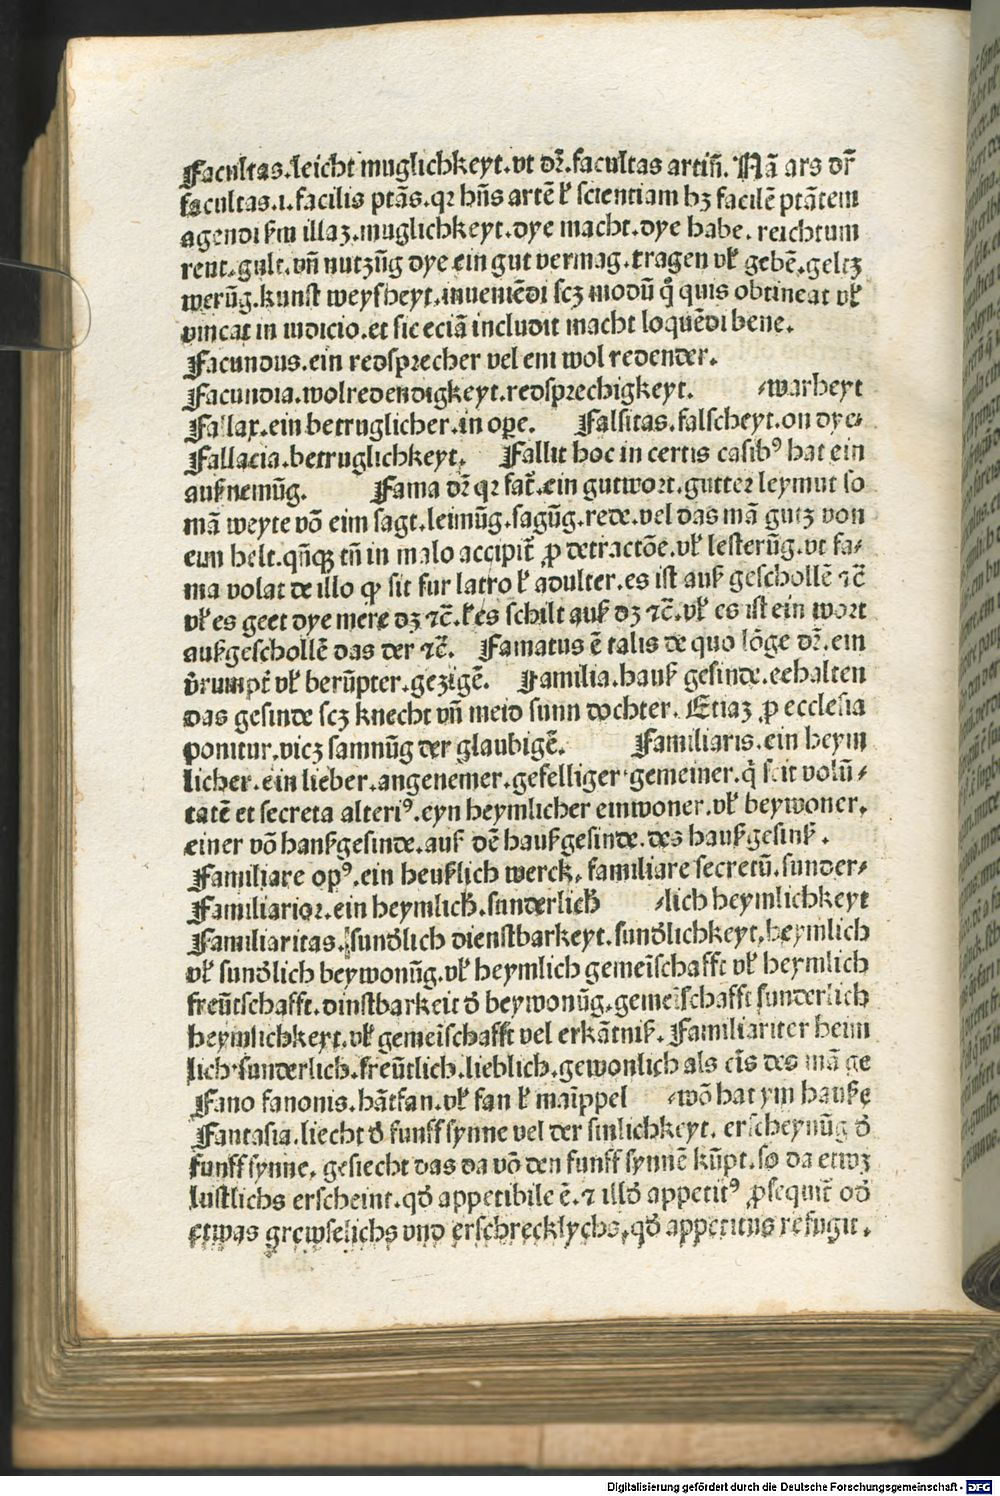 Facultas.leicht muglichkeyt.vt dr̄.facultas artiū. Nā ars dr̄
facultas.i.facilis ptās.qꝛ hn̄s artē ꝉ scientiam hꝫ facilē ptātem
agendi ẜm illaꝫ.muglichkeyt.dye macht.dye habe. reichtum
rent.gult.vn̄ nutzūg dye ein gut vermag.tragen vꝉ gebē.geltꝫ
werūg.kunst weyßheyt.inueniēdi scꝫ modū q̊ quis obtineat vꝉ
vincat in iudicio.et sic eciā includit macht loquēdi bene.
Facundus.ein redsprecher vel ein wol redender.
Facundia.wolredendigkeyt.redsprechigkeyt. ⸗warheyt
Fallax.ein betruglicher.in oꝑe. Falsitas.falscheyt.on dye⸗
Fallacia.betruglichkeyt. Fallit hoc in certis casibꝰ hat ein
außnemūg. Fama dr̄ qꝛ fat̄.ein gutwort.gutter leymut so
mā weyte vō eim sagt.leimūg.sagūg.rede.vel das mā gutz von
eim helt.qn̄qꝫ tn̄ in malo accipit̄ ꝓ detractōe.vꝉ lesterūg.vt fa⸗
ma volat de illo ꝙ sit fur latro ꝉ adulter.es ist auß geschollē ⁊c̄
vꝉ es geet dye mere dꝫ ⁊c̄.ꝉ es schilt auß dꝫ ⁊c̄.vꝉ es ist ein wort
außgeschollē das der ⁊c̄. Famatus ē talis de quo lōge dr̄.ein
v̄rumpt̄ vꝉ berūpter.gezigē. Familia.hauß gesinde.eehalten
das gesinde scꝫ knecht vn̄ meid sunn tochter. Etiaꝫ ꝓ ecclesia
ponitur.vicꝫ samnūg der glaubigē. Familiaris.ein heym
licher.ein lieber.angenemer.gefelliger.gemeiner.q̇ scit volū⸗
tatē et secreta alteriꝰ.eyn heymlicher einwoner.vꝉ beywoner.
einer vō haußgesinde.auß dē haußgesinde.des haußgesinß.
Familiare opꝰ.ein heußlich werck. familiare secretū.sunder⸗
Familiarior.ein heymlich̄.sunderlich̄ ⸗lich heymlichkeyt
Familiaritas.sund̄lich dienstbarkeyt.sund̄lichkeyt.heymlich
vꝉ sund̄lich beywonūg.vꝉ heymlich gemeīschafft vꝉ heymlich
freūtschafft.dinstbarkeit d̄ beywonūg.gemeīschafft sunderlich
heymlichkeyt.vꝉ gemeīschafft vel erkātniß. Familiariter heim
lich.sunderlich.freūtlich.lieblich.gewonlich als eīs des mā ge
Fano fanonis.hātfan.vꝉ fan ꝉ maīppel ⸗wō hat ym hauße
Fantasia.liecht d̄ funff synne vel der sinlichkeyt. erscheynūg d̄
funff synne. gesiecht das da vō den funff synnē kūpt.so da etwꝫ
lustlichs erscheint.qd̄ appetibile ē.⁊ illd̄ appetitꝰ ꝓsequit̄ od̄
etwas grewselichs vnd erschrecklychs.qd̄ appetitus refugit.
Digitalisierung gefördert durch die Deutsche Forschungsgemeinschaft - DFG